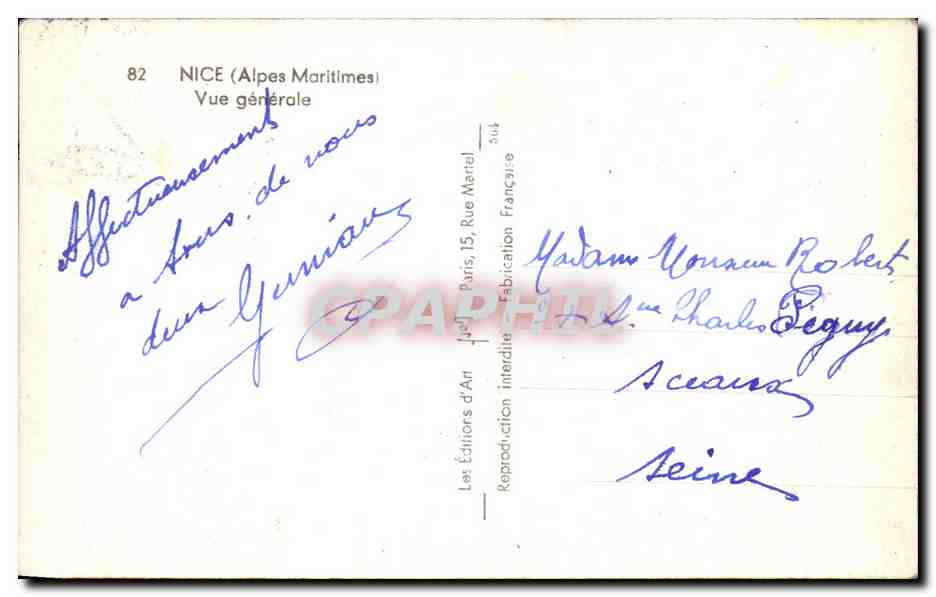 82 NICE (Alpes Maritimes)
Vue générale
Affectueusement
a tous de nous
deux
Les Éditions d'Art Paris, 15, Rue Martel
Reproduction interdite Fabrication Française
CPAPHIL
Madame Monsieur Robert
Rue Charles Péguy
Sceaux
Seine